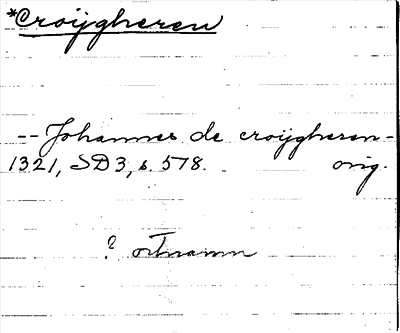 *Croijgheren
-- Johannes de croijgheren -
1321, SD3, s. 578. orig.
? ortnamn